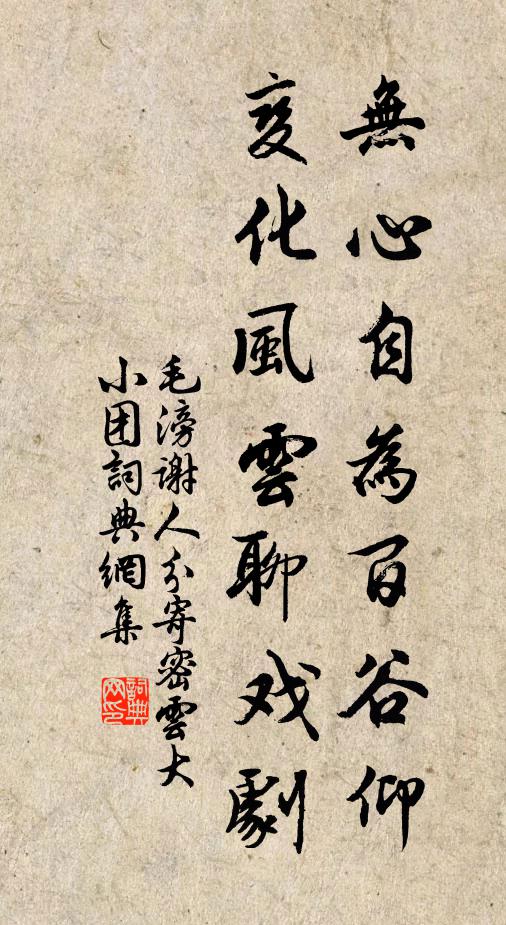 無心自為百谷仰
变化風雲聊戏劇
毛滂謝人分寄密雲大
小团詞典網集
詞典網印